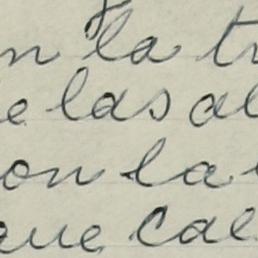 n la tr
e las al
on la
que cae